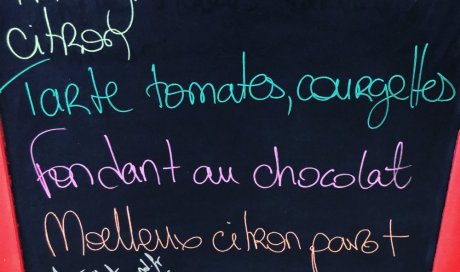 citron
Tarte tomates, courgettes
Fondant au chocolat
Moelleux citron pavot